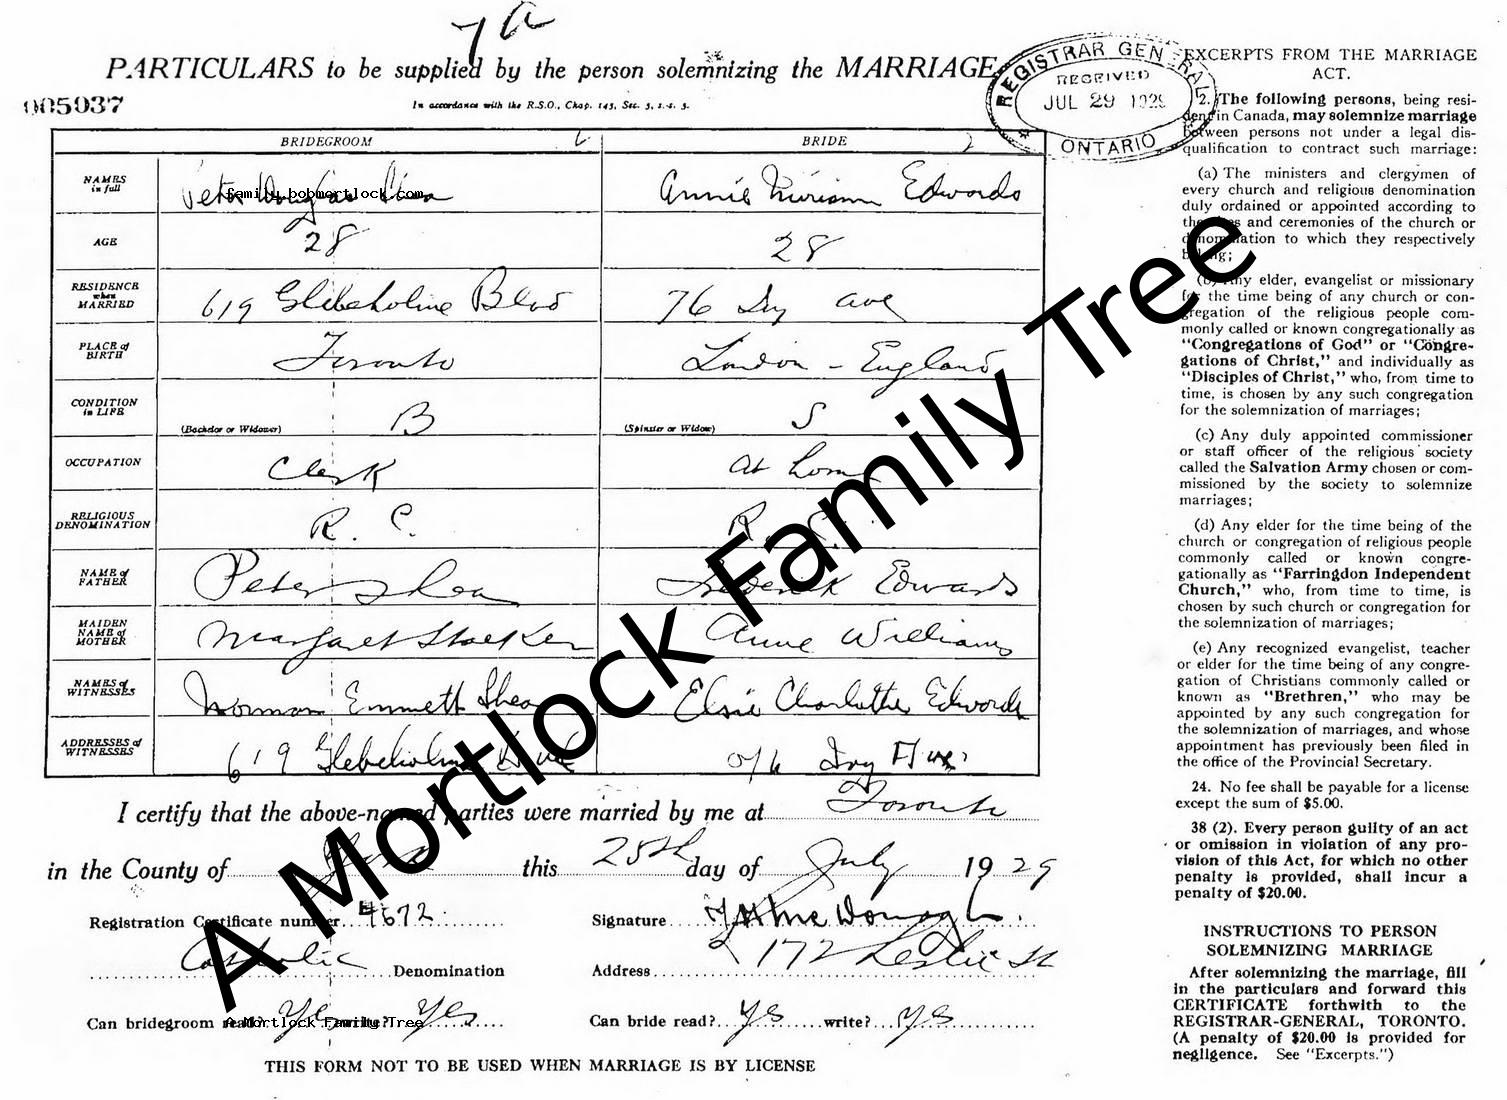 7 a
PARTICULARS to be supplied by the person solemnizing the MARRIAGE
005037
In accordance with the R.S.O., Chap. 143, Sec.
REGISTRAR GENERAL
RECEIVED
JUL 29 1929
ONTARIO
BRIDEGROOM
BRIDE
NAMES in full
Peter Douglas Shea
Annie Miriam Edwards
family.bobmortlock.com
AGE
28
28
RESIDENCE when MARRIED
619 Glebeholme Blvd
76 Ivy Ave
PLACE of BIRTH
Toronto
London - England
CONDITION in LIFE
(Bachelor or Widower)
B
(Spinster or Widow)
S
OCCUPATION
Clerk
at home
RELIGIOUS DENOMINATION
R. C.
R. C.
NAME of FATHER
Peter Shea
Frederick Edwards
MAIDEN NAME of MOTHER
Margaret
Anne Williams
NAMES of WITNESSES
Norman Emmett Shea
Elsie Charlotte Edwards
ADDRESSES of WITNESSES
619 Glebeholme
Ivy Ave
I certify that the above-named parties were married by me at Toronto
in the County of York this 25th day of July 1929
Registration Certificate number 4672
Signature
Catholic Denomination
Address 172 Leslie St
Can bridegroom read? Yes write? Yes
Can bride read? Yes write? Yes
A Mortlock Family Tree
THIS FORM NOT TO BE USED WHEN MARRIAGE IS BY LICENSE
A Mortlock Family Tree
EXCERPTS FROM THE MARRIAGE
ACT.
2. The following persons, being resi-
dent in Canada, may solemnize marriage
between persons not under a legal dis-
qualification to contract such marriage:
(a) The ministers and clergymen of
every church and religious denomination
duly ordained or appointed according to
the rites and ceremonies of the church or
denomination to which they respectively
belong;
(b) Any elder, evangelist or missionary
for the time being of any church or con-
gregation of the religious people com-
monly called or known congregationally as
"Congregations of God" or "Congre-
gations of Christ," and individually as
"Disciples of Christ," who, from time to
time, is chosen by any such congregation
for the solemnization of marriages;
(c) Any duly appointed commissioner
or staff officer of the religious society
called the Salvation Army chosen or com-
missioned by the society to solemnize
marriages;
(d) Any elder for the time being of the
church or congregation of religious people
commonly called or known congre-
gationally as "Farringdon Independent
Church," who, from time to time, is
chosen by such church or congregation for
the solemnization of marriages;
(e) Any recognized evangelist, teacher
or elder for the time being of any congre-
gation of Christians commonly called or
known as "Brethren," who may be
appointed by any such congregation for
the solemnization of marriages, and whose
appointment has previously been filed in
the office of the Provincial Secretary.
24. No fee shall be payable for a license
except the sum of $5.00.
38 (2). Every person guilty of an act
or omission in violation of any pro-
vision of this Act, for which no other
penalty is provided, shall incur a
penalty of $20.00.
INSTRUCTIONS TO PERSON
SOLEMNIZING MARRIAGE
After solemnizing the marriage, fill
in the particulars and forward this
CERTIFICATE forthwith to the
REGISTRAR-GENERAL, TORONTO.
(A penalty of $20.00 is provided for
negligence. See "Excerpts.")